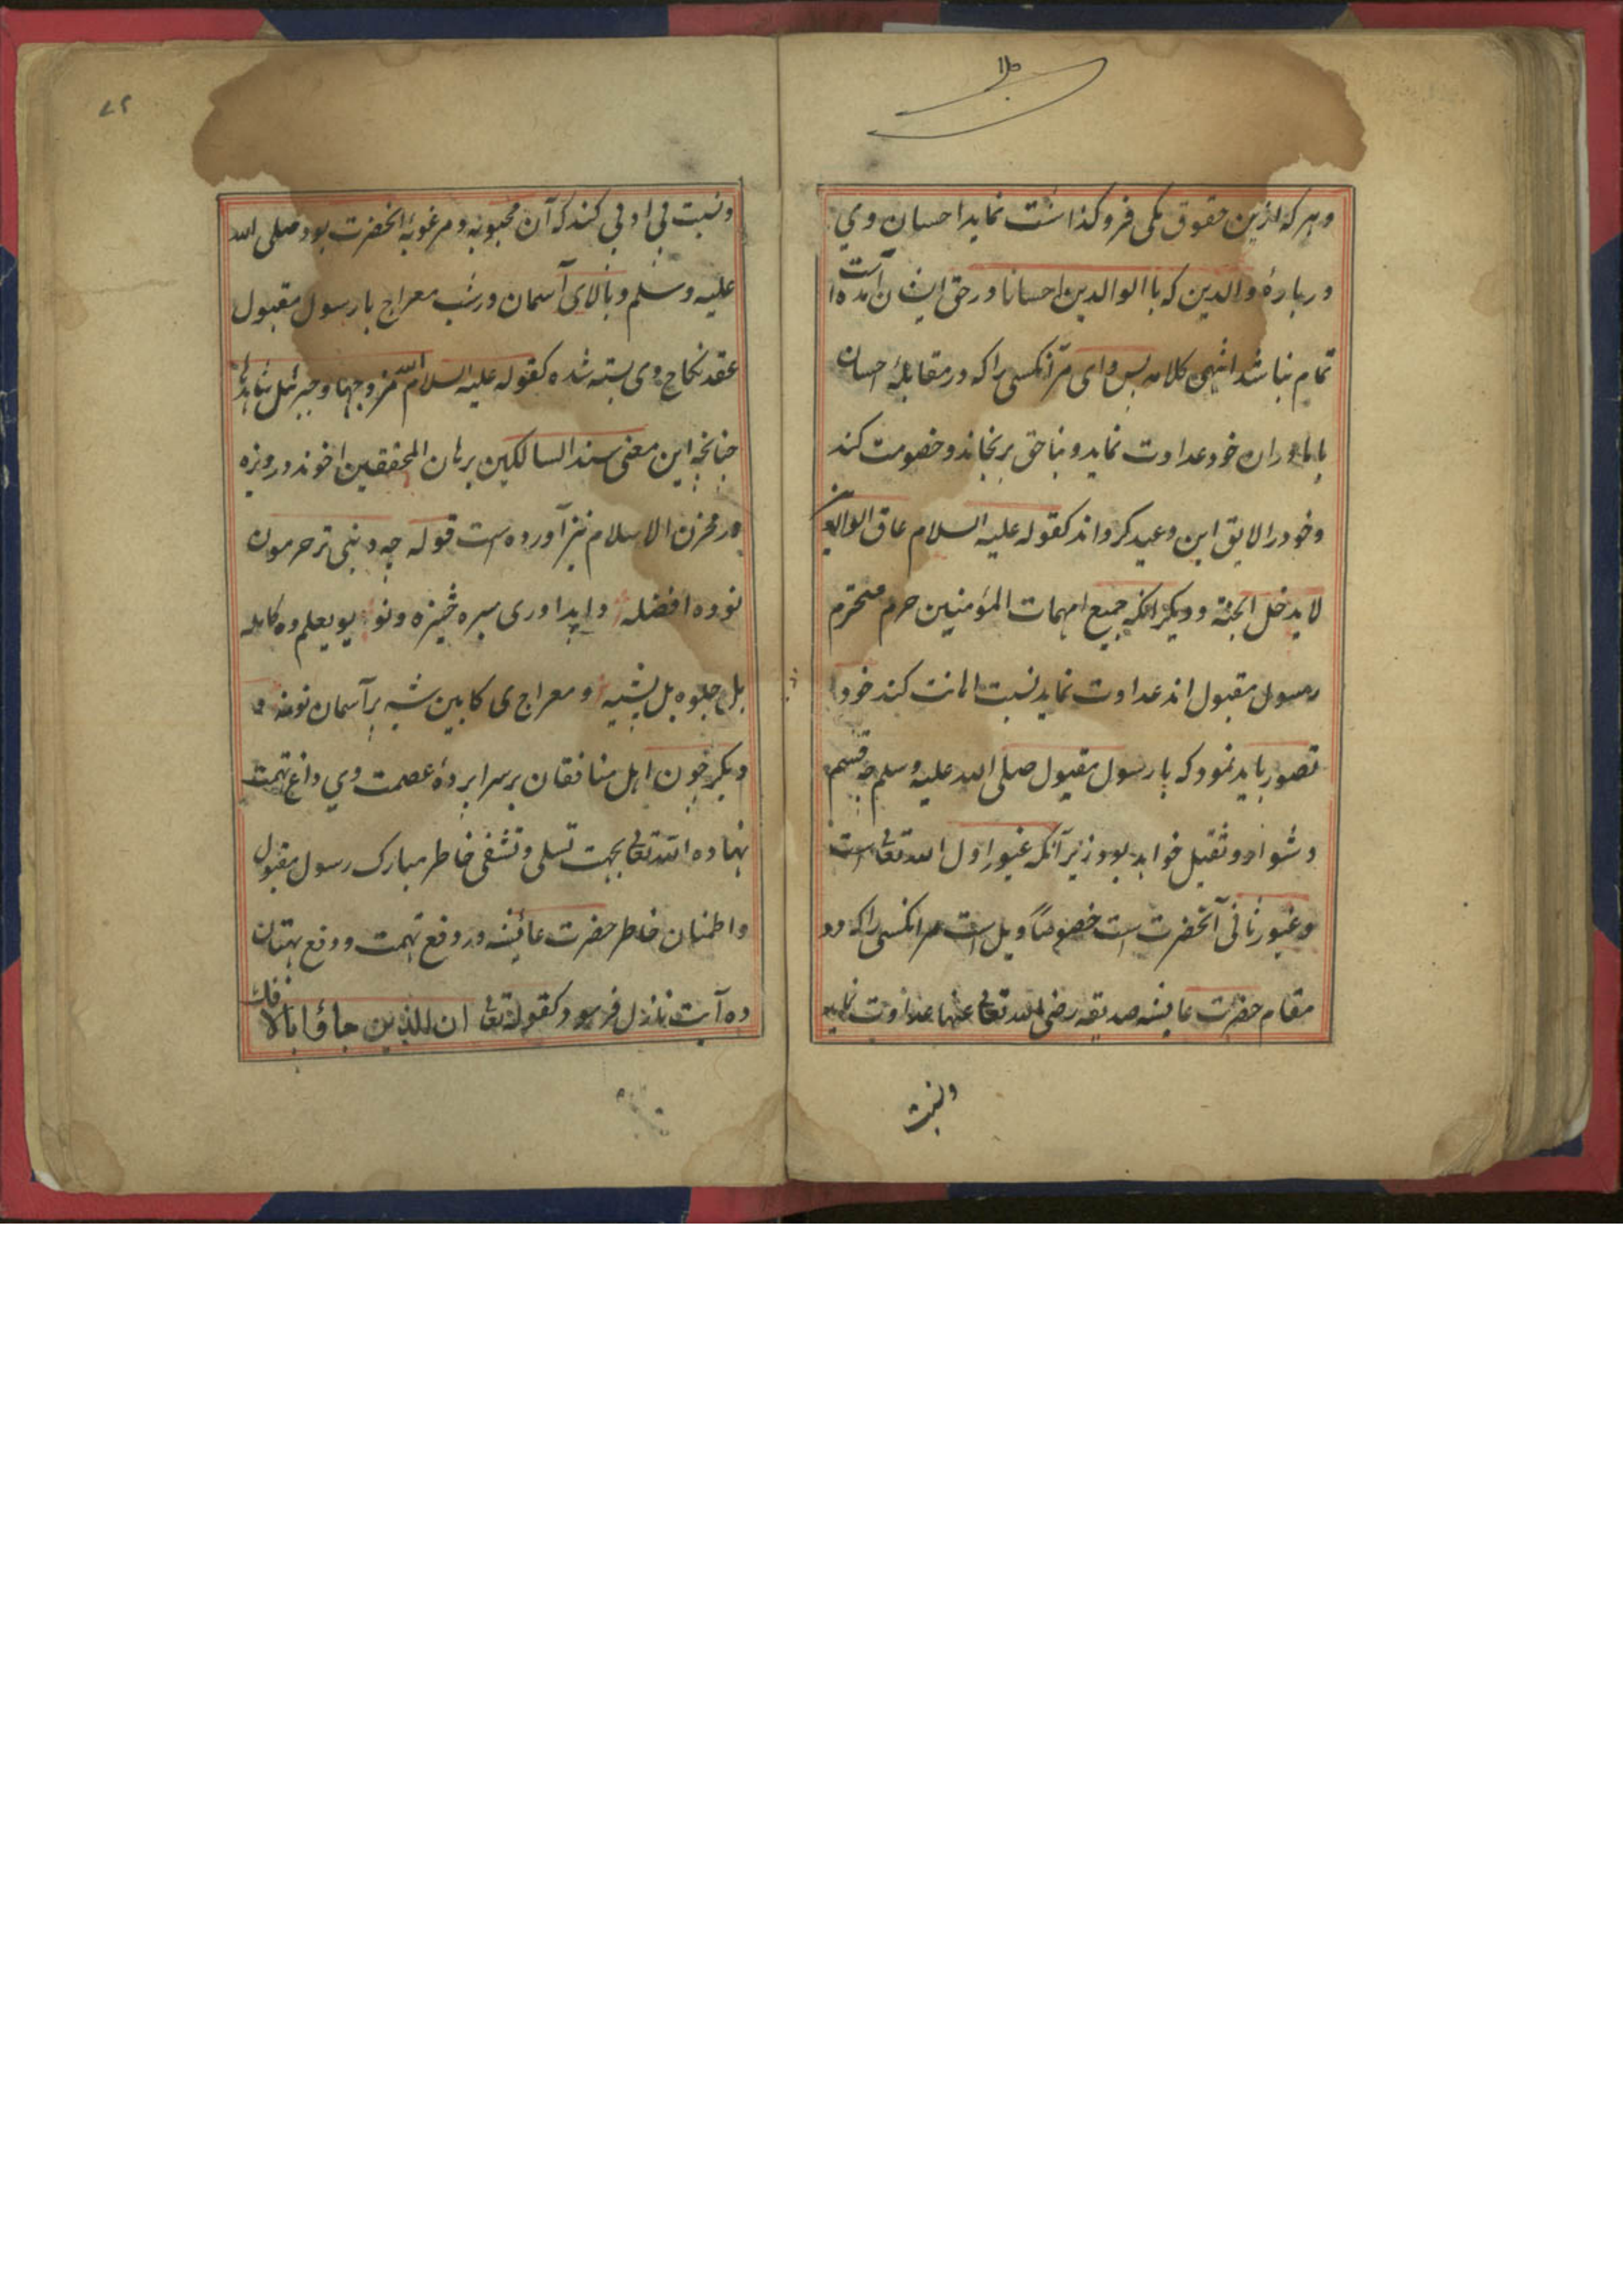 و هر که ازین حقوق یکی فروگذاشت نماید احسان وی
در بارهٔ والدین که باالوالدین احسانا در حق ایشان آمده است
تمام نباشد انتهی کلامه پس وای مر آنکسی را که در مقابلهٔ احسان
با مادران خود عداوت نماید و بناحق برنجاند و خصومت کند
و خود را لایق این وعید کرداند کقوله علیه السلام عاق الوالدین
لا یدخل الجنة و دیکر انکه جمیع امهات المؤمنین حرم محترم
رسول مقبول اند عداوت نماید نسبت اهانت کند خود را
تصور باید نمود که با رسول مقبول صلی الله علیه وسلم چه قسم
دشوار و ثقیل خواهد بود زیر آنکه غیور اول الله تعالی است
و غیور ثانی آنحضرت است خصوصاً ویل است مر انکسی را که در
مقام حضرت عایشه صدیقه رضی الله تعالی عنها عداوت نماید
ونسبت
۷۲
و نسبت بی ادبی کند که آن محبوبه و مرغوبهٔ انحضرت بود صلی الله
علیه وسلم و بالای آسمان در شب معراج با رسول مقبول
عقد نکاح وی بسته شده کقوله علیه السلام الله مزوجها و جبرئیل شاهدها
چنانچه این معنی سند السالکین برهان المحققین اخوند درویزه
در مخزن الاسلام نیز آورده است قوله چه د بنی تر حرمون
نوره افضله دا پداوری سره څیزه ونو یو بعلم وه کامله
بل جلوه بل پشیه و معراج ی کابین شه بر آسمان نومنه و
دیکر چون اهل منافقان بر سرا پردهٔ عصمت وی داغ تهمت
نهاده الله تعالی بجهت تسلی و تشفی خاطر مبارک رسول مقبول
و اطمنان خاطر حضرت عائیشه در رفع تهمت و دفع بهتان
ده آیت نزول فرمود کقوله تعالی ان الذین جاؤا بالافک